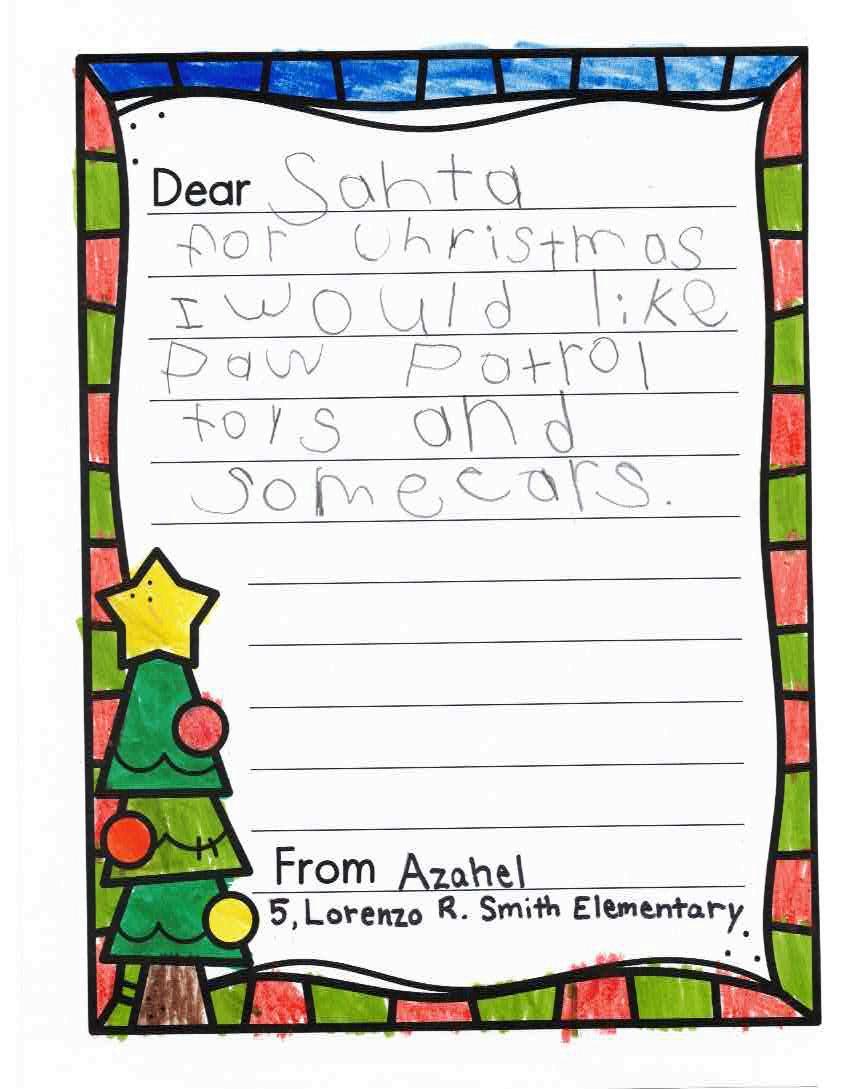 Dear Santa
for Christmas
I would like
Paw Patrol
toys and
somecars.
From Azahel
5, Lorenzo R. Smith Elementary